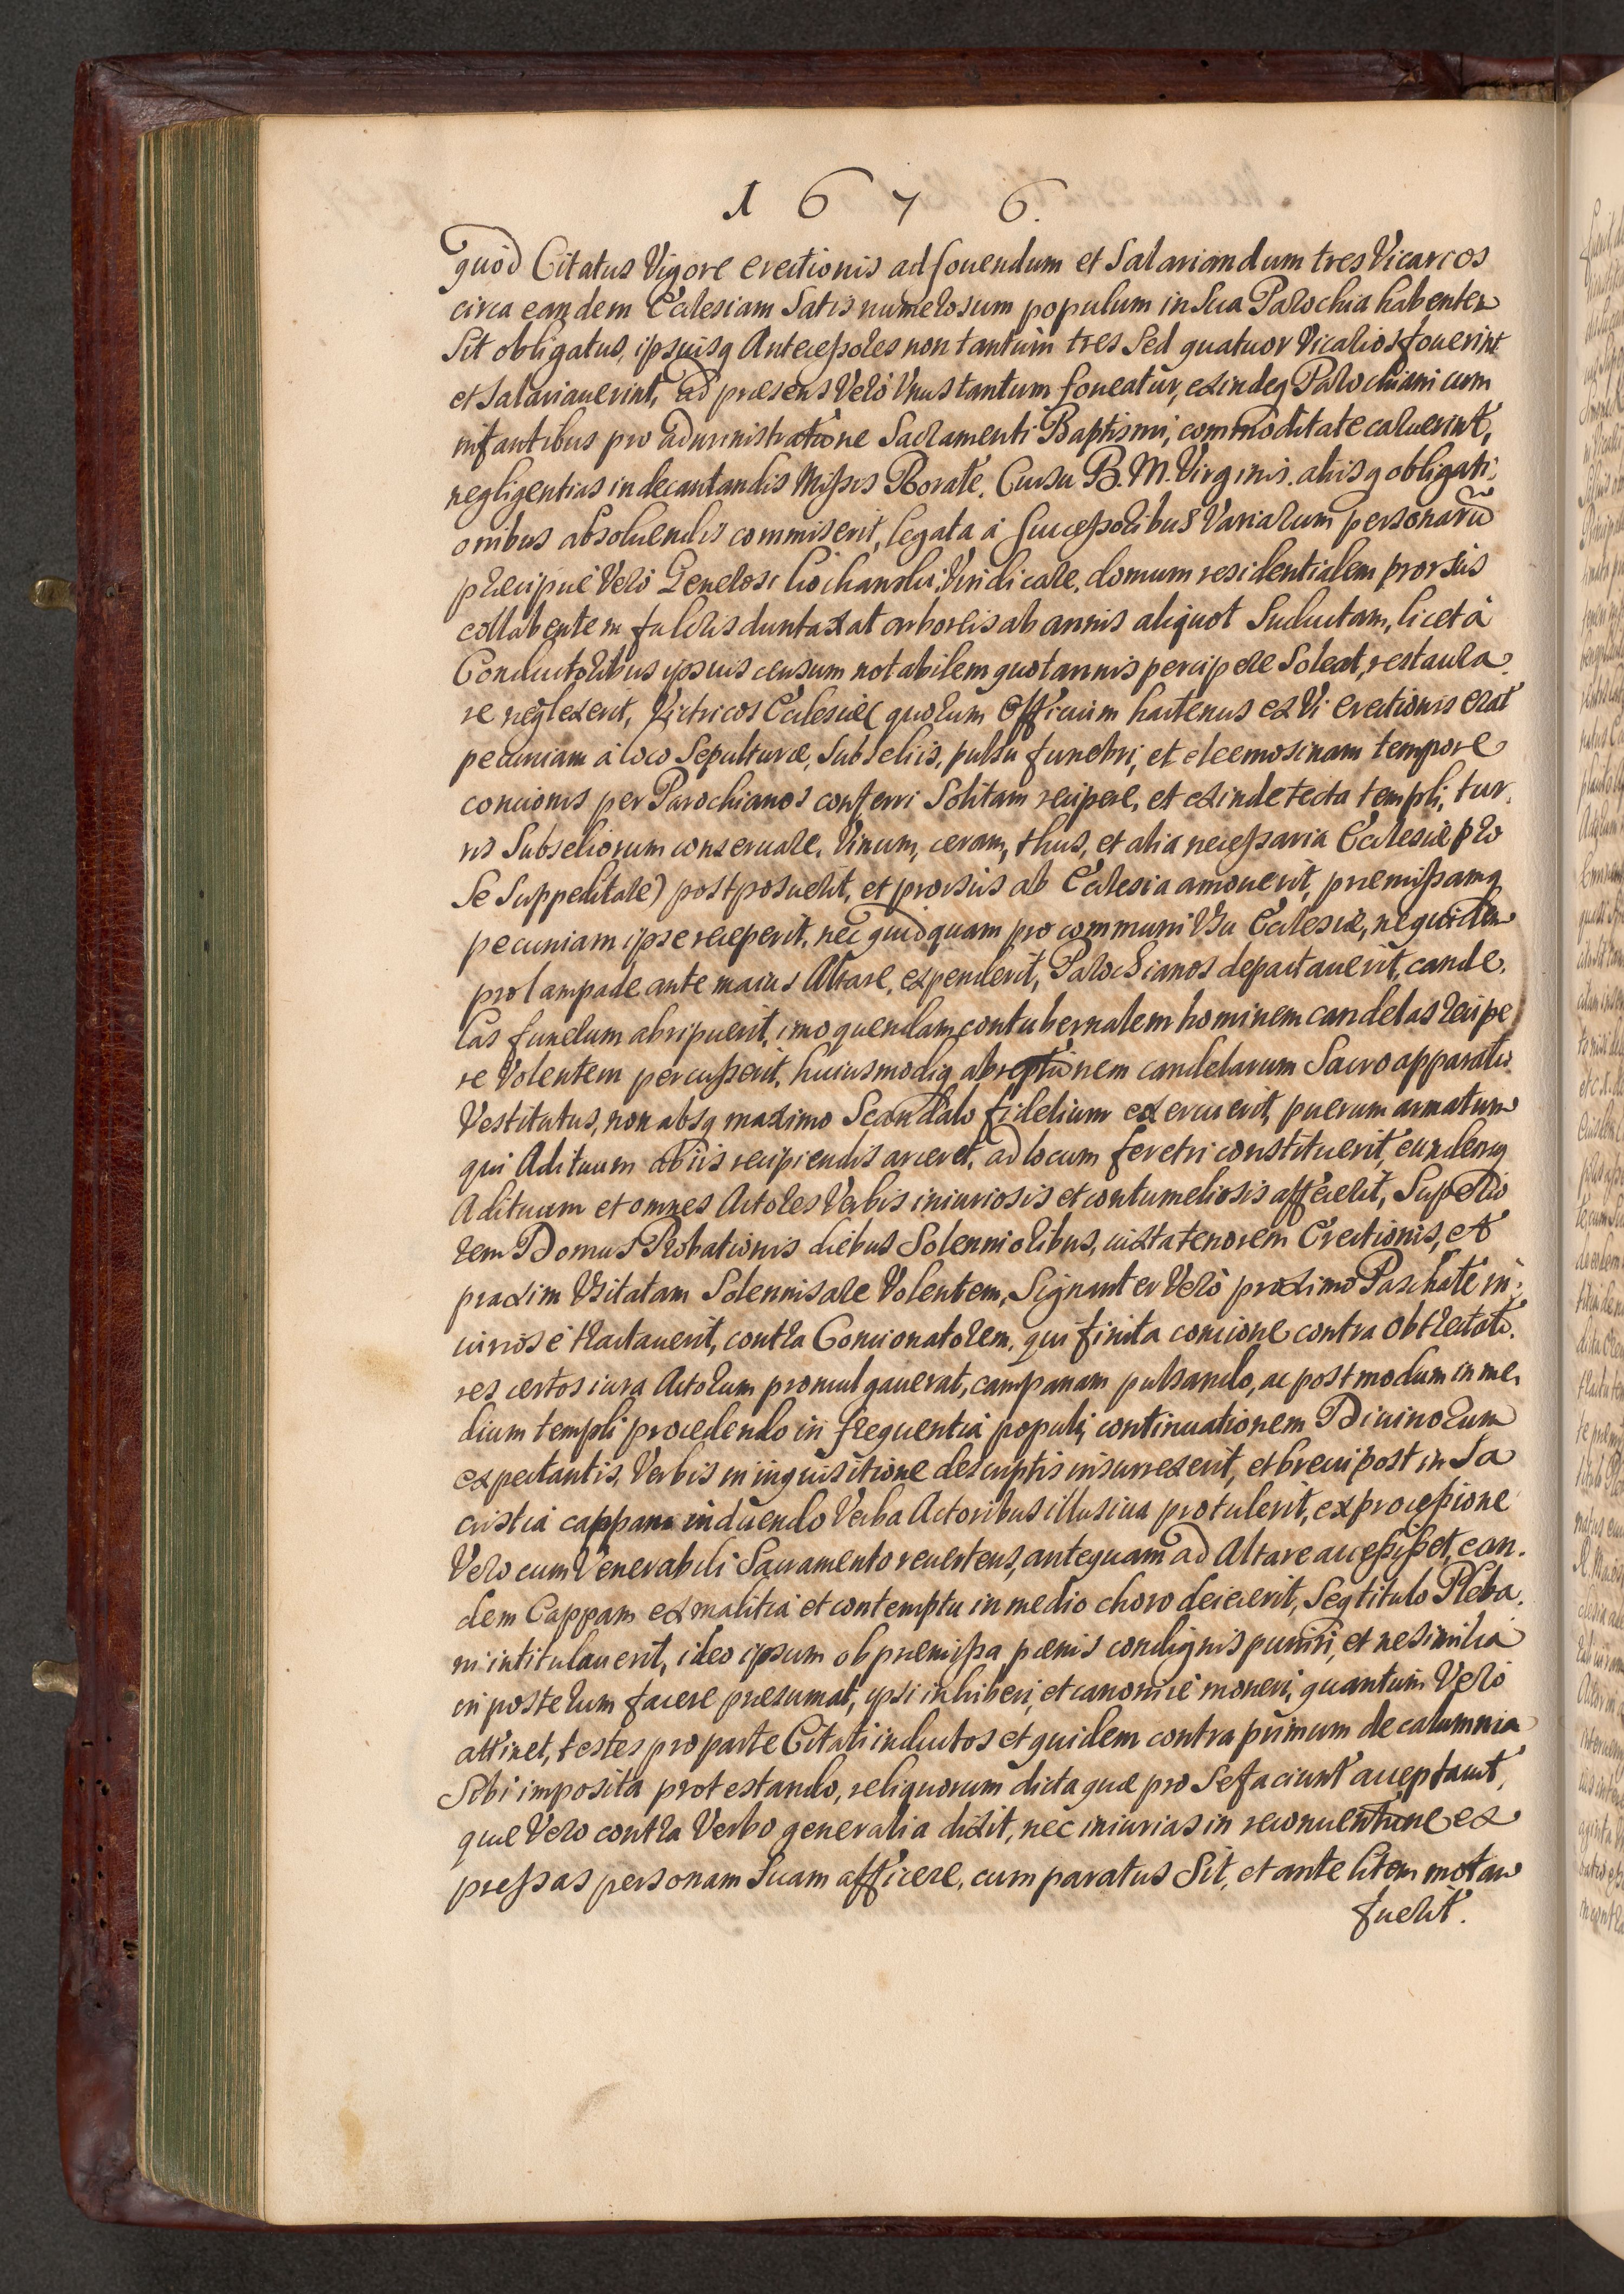 1 6 7 6.
quod Citatus Vigore erectionis ad fouendum et Salariandum tres Vicarios
circa eandem Ecclesiam Satis numerosum populum in Sua Parochia habentem
Sit obligatus, ipsiusq Antecessores non tantum tres Sed quatuor Vicarios fouerint
et Salariauerint, ad præsens Verò Vnus tantum foueatur, exindeq Parochiani cum
infantibus pro administratione Sacramenti Baptismi, commoditate caruerint,
negligentias in decantandis Missis Rorate, Cursu B. M. Virginis aliisq obligati:
onibus absoluendis commiserit, legata à Successoribus Variarum personarũ
præcipuè Verò Generosi Vindicare, domum residentialem prorsus
collabentem fulcris duntaxat arboreis ab annis aliquot Suductam, licet à
Conductoribus ipsius censum notabilem quotannis percipere Soleat, restaura
re neglexerit, Vitricos Ecclesiæ (quorum Officium hactenus ex Vi erectionis erat
pecuniam à loco Sepulturæ, Subseliis, pulsu funebri, et eleemosinam tempore
concionis per Parochianos conferri Solitam recipere, et exinde tecta templi, tur,
ris Subseliorum conseruare, Vinum, ceram, thus, et alia necessaria Ecclesiæ pro
Se Suppeditare) postposuerit, et prorsus ab Ecclesia amouerit, præmissamq
pecuniam ipse receperit, nec quidquam pro communi Vsu Ecclesiæ, ne quidem
pro lampade ante maius Altare, expenderit, Parochianos depactauerit, cande,
las funerum abripuerit, imo quendam contubernalem hominem candelas recipe
re Volentem percusserit, huiusmodiq abreptionem candelarum Sacro apparatu
Vestitutus, non absq maximo Scandalo fidelium exercuerit, puerum armatum
qui Adituum ab iis recipiendis arceret, ad locum feretri constituerit, eundemq
Adituum et omnes Actores Verbis iniuriosis et contumeliosis affecerit, Superio
rem Domus Probationis diebus Solennioribus, iuxta tenorem Erectionis, et
praxim Vsitatam Solennisare Volentem, Signanter Verò proximo Paschate in:
iuriosè tractauerit, contra Concionatorem, qui finita concione contra obtrectato,
res certos iura Actorum promulgauerat, campanam pulsando, ac postmodum in me,
dium templi procedendo in frequentia populi, continuationem Diuinorum
expectantis, Verbis in inquisitione descriptis insurrexerit, et breui post in Sa
cristia cappam induendo Verba Actoribus illusiua protulerit, ex processione
Vero cum Venerabili Sacramento reuertens, antequam ad Altare accessisset, ean,
dem Cappam ex malitia et contemptu in medio choro deiecerit, Seq titulo Pleba,
ni intitulauerit, ideo ipsum ob præmissa pœnis condignis puniri, et ne similia
in posterum facere præsumat, ipsi inhiberi, et canonicè moneri, quantum Verò
attinet, testes pro parte Citati inductos et quidem contra primum de calumnia
Sibi imposita protestando, reliquorum dicta quæ pro Se faciunt acceptant,
quæ Vero contra Verbo generalia dixit, nec iniurias in reconuentione ex
pressas personam Suam afficere, cum paratus Sit, et ante litem motam
fuerit.